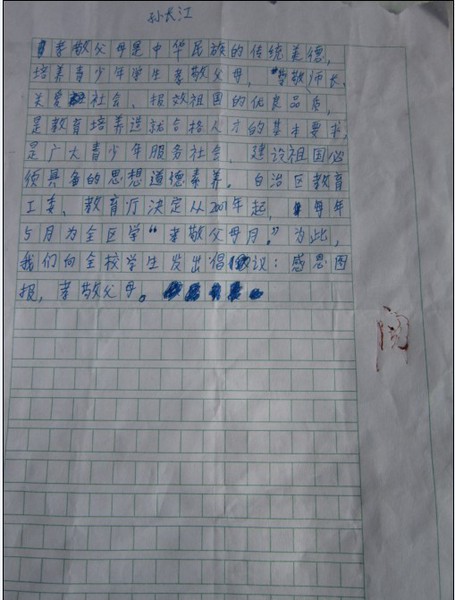 孙长江
孝敬父母是中华民族的传统美德,
培养青少年学生孝敬父母,尊敬师长,
关爱社会、报效祖国的优良品质,
是教育培养造就合格人才的基本要求,
是广大青少年服务社会、建设祖国必
须具备的思想道德素养。自治区教育
工委、教育厅决定从2001年起,每年
5月为全区学“孝敬父母月。”为此,
我们向全校学生发出倡议:感恩图
报,孝敬父母。
阅